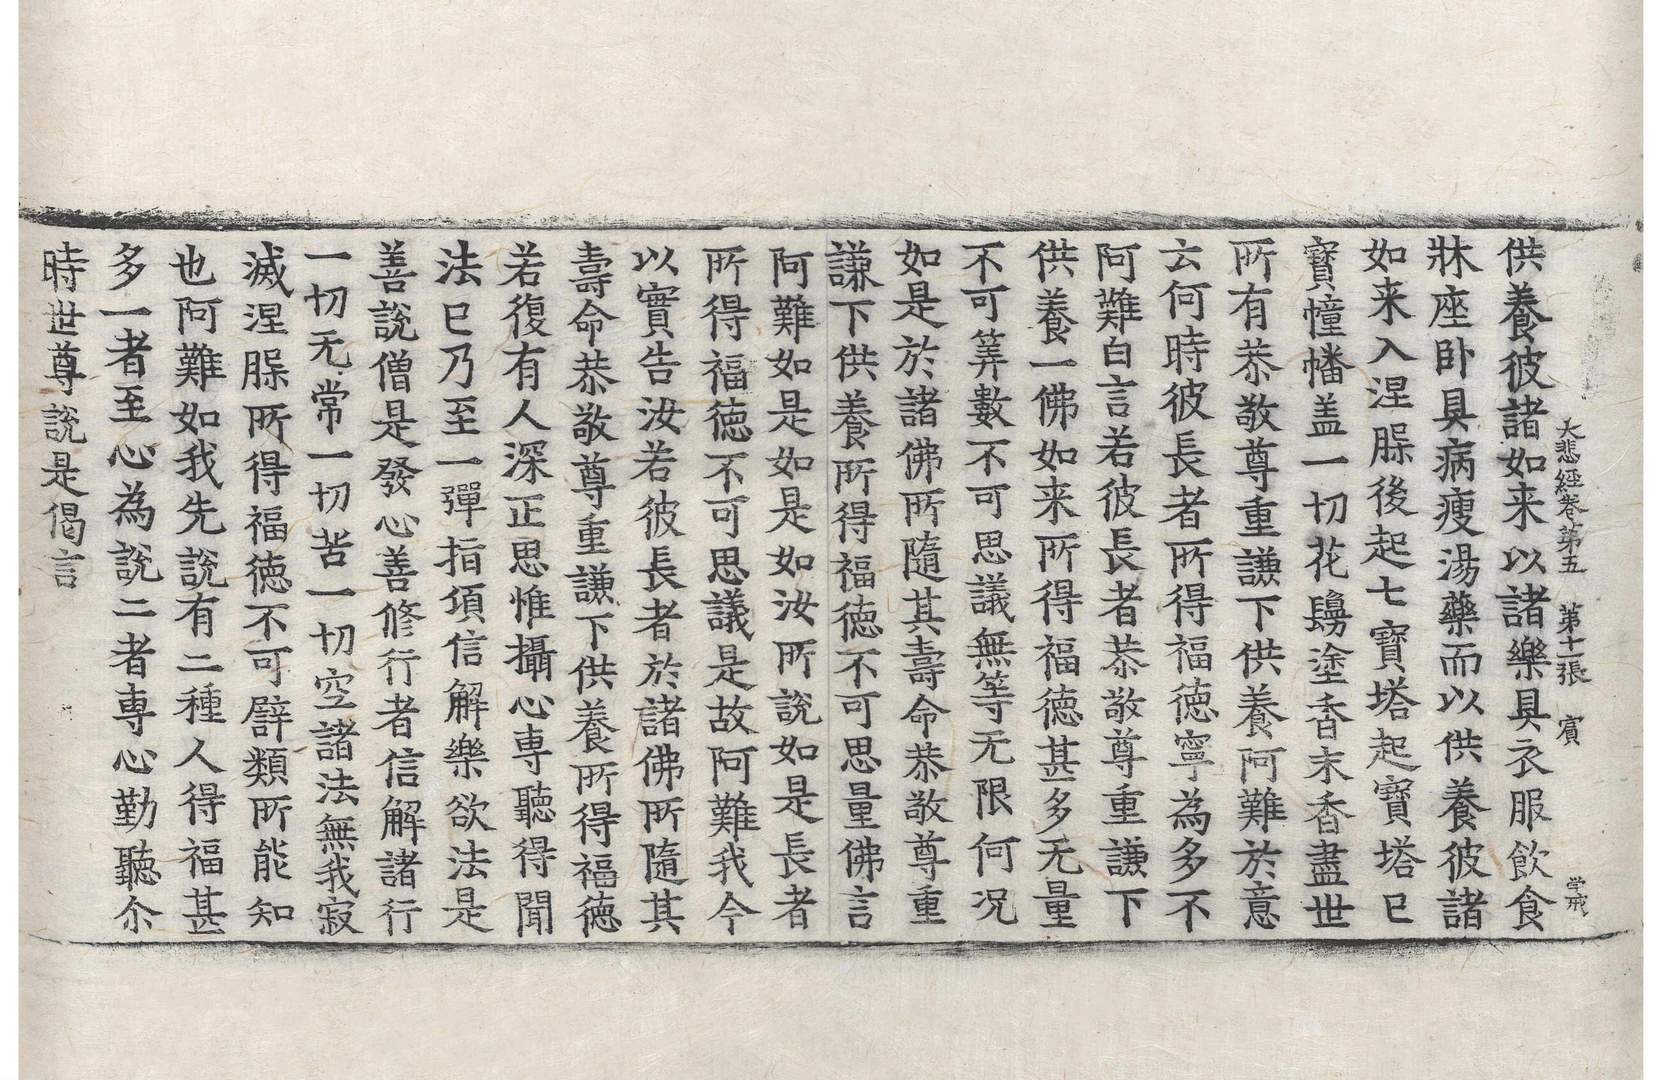 大悲經卷第五 第十一張 賓 学戒
供養彼諸如来以諸樂具衣服飲食
牀座卧具病瘦湯藥而以供養彼諸
如来入涅槃後起七寶塔起寶塔已
寶幢幡盖一切花鬘塗香末香盡世
所有恭敬尊重謙下供養阿難於意
云何時彼長者所得福德寧為多不
阿難白言若彼長者恭敬尊重謙下
供養一佛如来所得福德甚多无量
不可筭數不可思議無等无限何況
如是於諸佛所隨其壽命恭敬尊重
謙下供養所得福德不可思量佛言
阿難如是如是如汝所說如是長者
所得福德不可思議是故阿難我今
以實告汝若彼長者於諸佛所隨其
壽命恭敬尊重謙下供養所得福德
若復有人深正思惟攝心專聽得聞
法已乃至一彈指頃信解樂欲法是
善說僧是發心善修行者信解諸行
一切无常一切苦一切空諸法無我寂
滅涅槃所得福德不可譬類所能知
也阿難如我先說有二種人得福甚
多一者至心為說二者專心勤聽尒
時世尊說是偈言